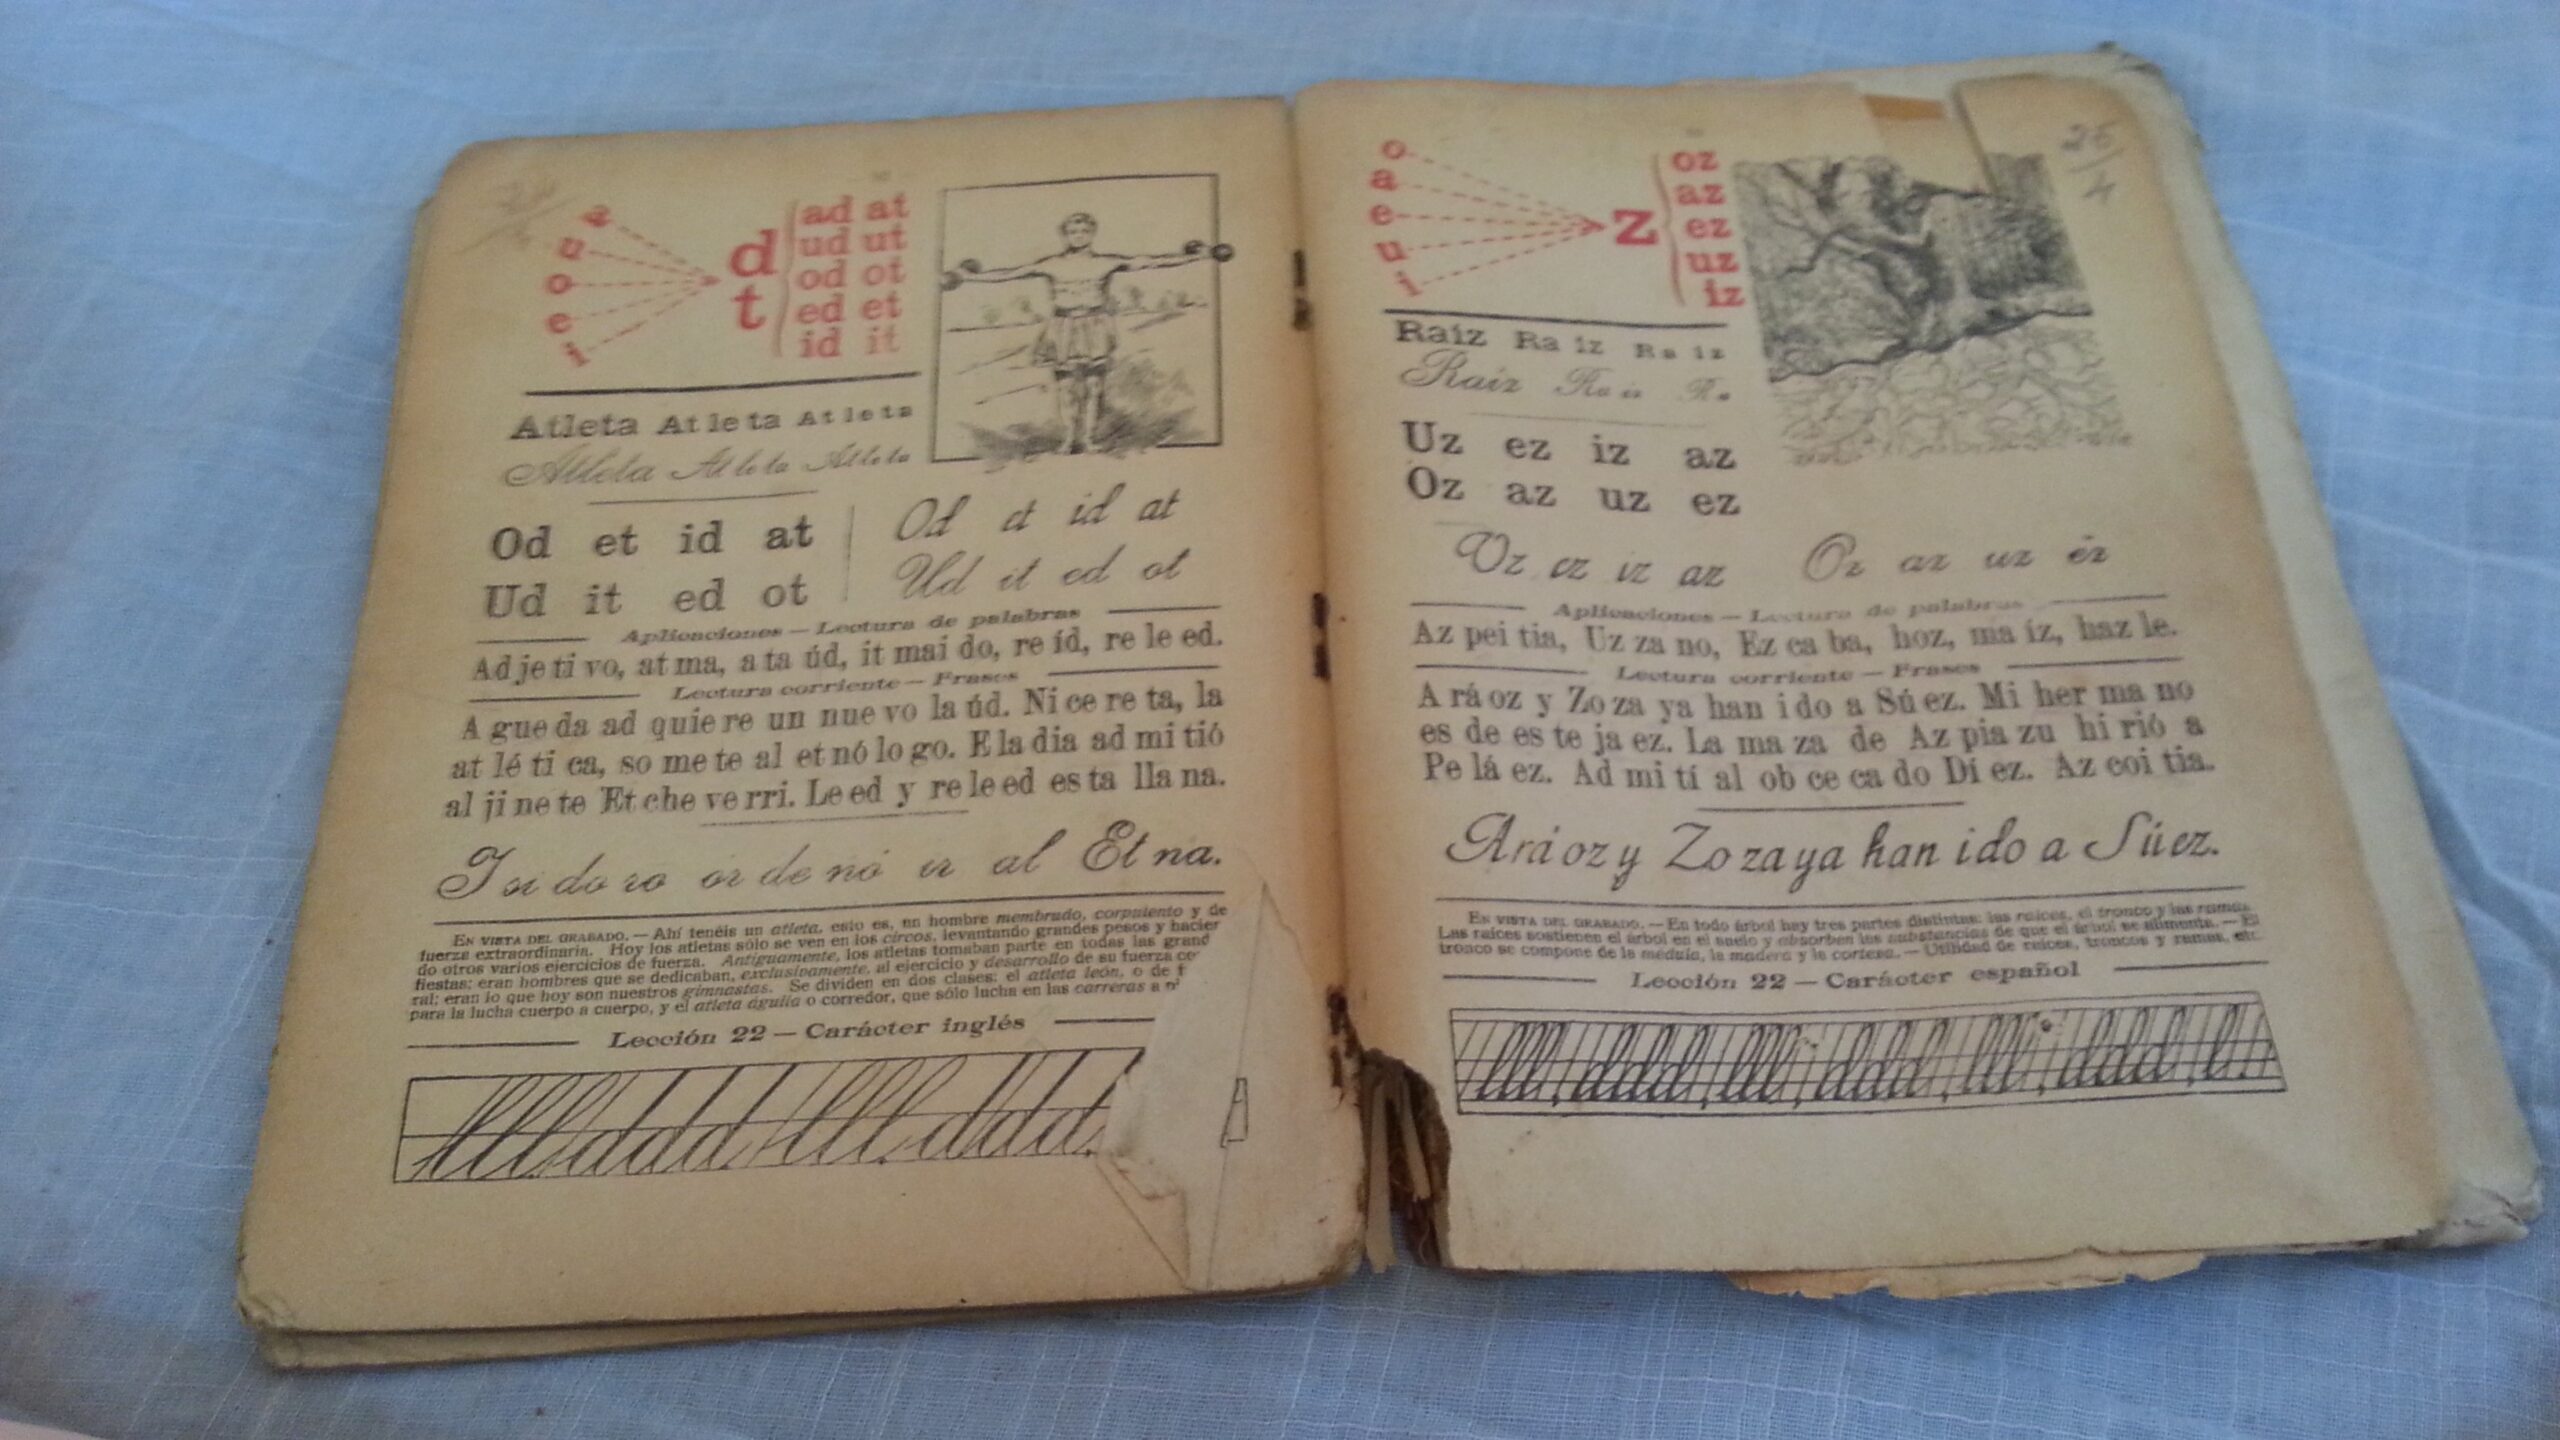 a
u
o
e
i
d
t
ad at
ud ut
od ot
ed et
id it
Atleta At le ta At le ta
Atleta At le ta At le ta
Od et id at
Ud it ed ot
Od et id at
Ud it ed ot
Aplicaciones — Lectura de palabras
Ad je ti vo, at ma, a ta úd, it mai do, re íd, re le ed.
Lectura corriente — Frases
A gue da ad quie re un nue vo la úd. Ni ce re ta, la
at lé ti ca, so me te al et nó lo go. E la dia ad mi tió
al ji ne te Et che ve rri. Le ed y re le ed es ta lla na.
I si do ro or de nó ir al Et na.
EN VISTA DEL GRABADO. — Ahí tenéis un atleta, esto es, un hombre membrudo, corpulento y de
fuerza extraordinaria. Hoy los atletas sólo se ven en los circos, levantando grandes pesos y hacien
do otros varios ejercicios de fuerza. Antiguamente, los atletas tomaban parte en todas las grand
fiestas; eran hombres que se dedicaban, exclusivamente, al ejercicio y desarrollo de su fuerza co
ral; eran lo que hoy son nuestros gimnastas. Se dividen en dos clases: el atleta león, o de f
para la lucha cuerpo a cuerpo, y el atleta águila o corredor, que sólo lucha en las carreras a
Lección 22 — Carácter inglés
lll ddd lll ddd.
25/4
o
a
e
u
i
z
oz
az
ez
uz
iz
Raíz Ra íz Ra íz
Raíz Ra íz Ra
Uz ez iz az
Oz az uz ez
Uz ez iz az Oz az uz ez
Aplicaciones — Lectura de palabras
Az pei tia, Uz za no, Ez ca ba, hoz, ma íz, haz le.
Lectura corriente — Frases
A rá oz y Zo za ya han i do a Sú ez. Mi her ma no
es de es te ja ez. La ma za de Az pia zu hi rió a
Pe lá ez. Ad mi tí al ob ce ca do Dí ez. Az coi tia.
A rá oz y Zo za ya han i do a Sú ez.
EN VISTA DEL GRABADO. — En todo árbol hay tres partes distintas: las raíces, el tronco y las ramas.
Las raíces sostienen el árbol en el suelo y absorben las substancias de que el árbol se alimenta. — El
tronco se compone de la médula, la madera y la corteza. — Utilidad de raíces, troncos y ramas, etc.
Lección 22 — Carácter español
lll, dddd, lll, ddd, lll, ddd, l.